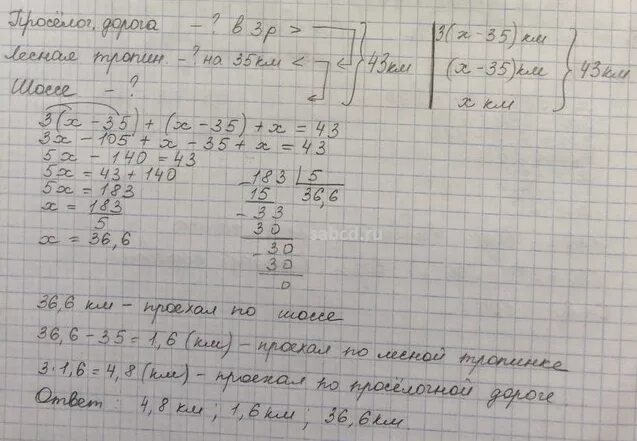 Просёлог. дорога - ? в 3 р > 
Лесная тропин. - ? на 35 км <
Шоссе - ?
43 км
3(х - 35) км
(х - 35) км
х км
43 км
3(х - 35) + (х - 35) + х = 43
3х - 105 + х - 35 + х = 43
5х - 140 = 43
5х = 43 + 140
5х = 183
х = 183/5
х = 36,6
183 | 5
15 36,6
- 33
30
- 30
30
0
sabcd.ru
36,6 км - проехал по шоссе
36,6 - 35 = 1,6 (км) - проехал по лесной тропинке
3 · 1,6 = 4,8 (км) - проехал по просёлочной дороге
Ответ : 4,8 км ; 1,6 км ; 36,6 км.